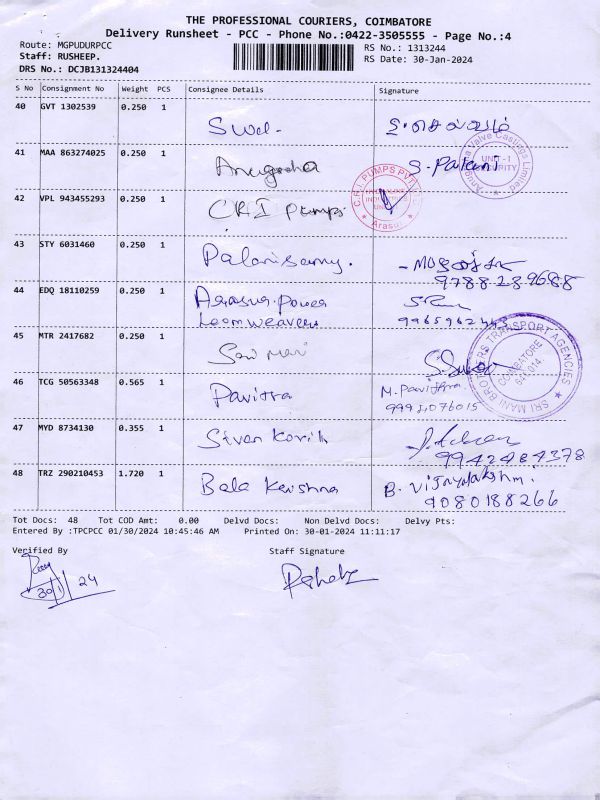 THE PROFESSIONAL COURIERS, COIMBATORE
Delivery Runsheet - PCC - Phone No.:0422-3505555 - Page No.:4
Route: MGPUDURPCC
RS No.: 1313244
Staff: RUSHEEP.
RS Date: 30-Jan-2024
DRS No.: DCJB131324404
S No Consignment No Weight PCS Consignee Details Signature
40 GVT 1302539 0.250 1
41 MAA 863274025 0.250 1 Anugraha S. Palani
Anugraha Valve Castings Limited
UNIT-I
SECURITY
42 VPL 943455293 0.250 1 CRI Pumps
C.R.I. PUMPS PVT
Arasur
43 STY 6031460 0.250 1 Palanisamy.
9788289688
44 EDQ 18110259 0.250 1 Arasur. Power
Loom weavers
45 MTR 2417682 0.250 1 Sri Mani
SRI MANI BROTHERS TRANSPORT AGENCIES
COIMBATORE
641 014
46 TCG 50563348 0.565 1 Pavithra M. Pavithra
47 MYD 8734130 0.355 1 Sivan
48 TRZ 290210453 1.720 1 Bala Krishna B. Vijayalakshmi
9080188266
Tot Docs: 48 Tot COD Amt: 0.00 Delvd Docs: Non Delvd Docs: Delvy Pts:
Entered By :TPCPCC 01/30/2024 10:45:46 AM Printed On: 30-01-2024 11:11:17
Verified By Staff Signature
30/1/24